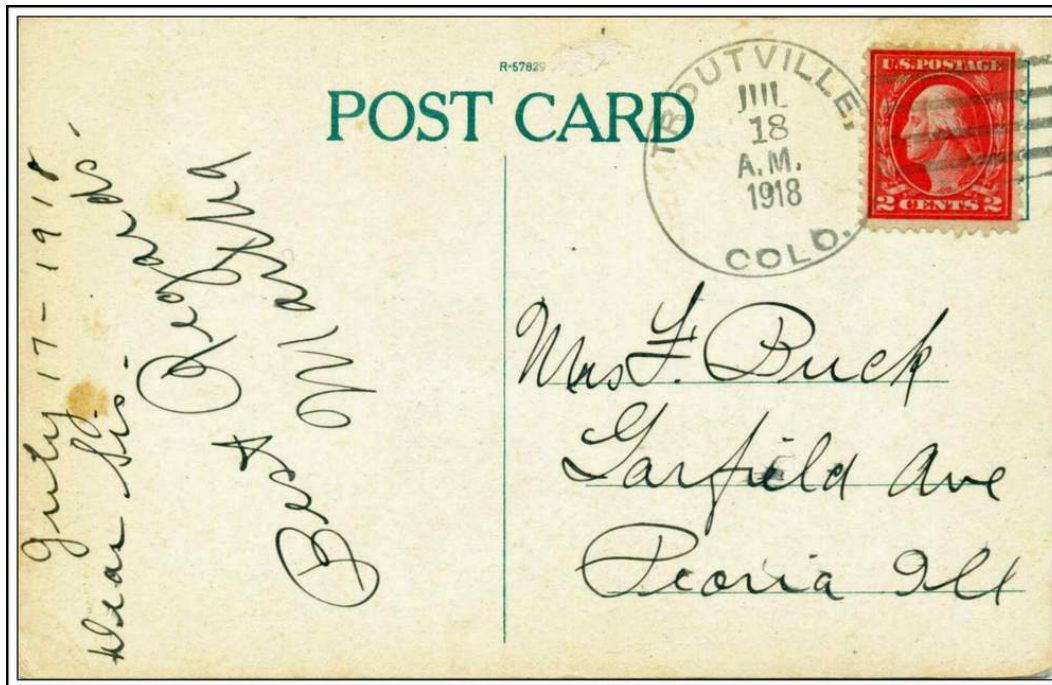 R-57829
POST CARD
TROUTVILLE,
JUL
18
A.M.
1918
COLO.
U.S. POSTAGE
2 CENTS 2
July 17-1918
Dear Sis-
Best Regards-
Martha
Mrs F. Buck
Garfield Ave
Peoria Ill